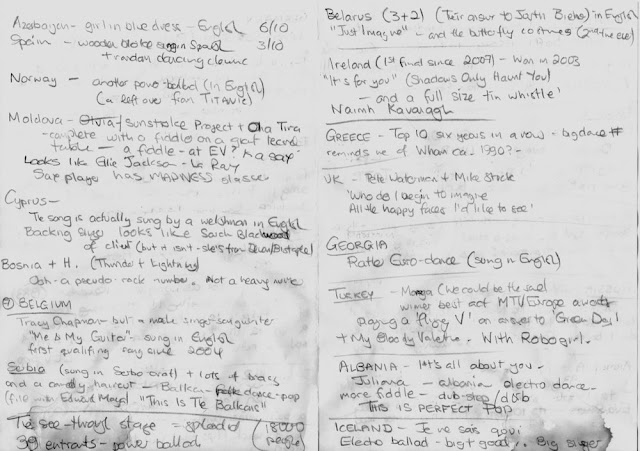 Azerbaijan - girl in blue dress - English 6/10
Spain - wooden bloke sung in Spanish 3/10
+ random dancing clowns
Norway - another power ballad (In English)
(a left over from TITANIC)
Moldova - Olvia/Sunstroke Project + Olia Tira
- complete with a fiddle on a
table - a fiddle - at EV? + a sax
Looks like Ellie Jackson - La Roux
Sax player has MADNESS glasses
Cyprus -
The song is actually sung by a welshman in English
Backing singer looks like Sarah Blackwood
of client (but it isnt - she's from Devon/Barnstaple)
Bosnia + H. (Thunder + Lightning)
Ooh - a pseudo-rock number. Not a heavy
BELGIUM
Tracy Chapman - but a male singer-songwriter
"Me & My Guitar" - sung in English
first qualifying song since 2004
Serbia (sung in Serbo croat) + lots of brass
and a haircut - Balkan - folk dance-pop
(file with Edward Maya) "This Is The Balkans"
The see-through stage = splendid (18000
39 entrants - power ballad people)
Belarus (3+2) (Their answer to Justin Bieber) in English
"Just Imagine" - and the butterfly costumes
Ireland (1st final since 2007) - Won in 2003
"It's for you" (Shadows Only Haunt You)
- and a full size tin whistle!
Niamh Kavanagh
GREECE - Top 10 six years in a row - big dance #
reminds me of Wham ca. 1990? -
UK - Pete Waterman + Mike Stock
'Who do I begin to imagine
All the happy faces I'd like to see'
GEORGIA
Rather Euro-dance (sung in English)
TURKEY - Manga (we could be the same)
winner best act MTV Europe awards
playing a 'flying V' an answer to 'Green Day'
+ My Bloody Valentine. With Robogirl.
ALBANIA - It's all about you -
Juliana - albania electro dance -
more fiddle - dub-step / dub
THIS IS PERFECT POP
ICELAND - Je ne sais quoi
Electro ballad - big + good .. Big singer